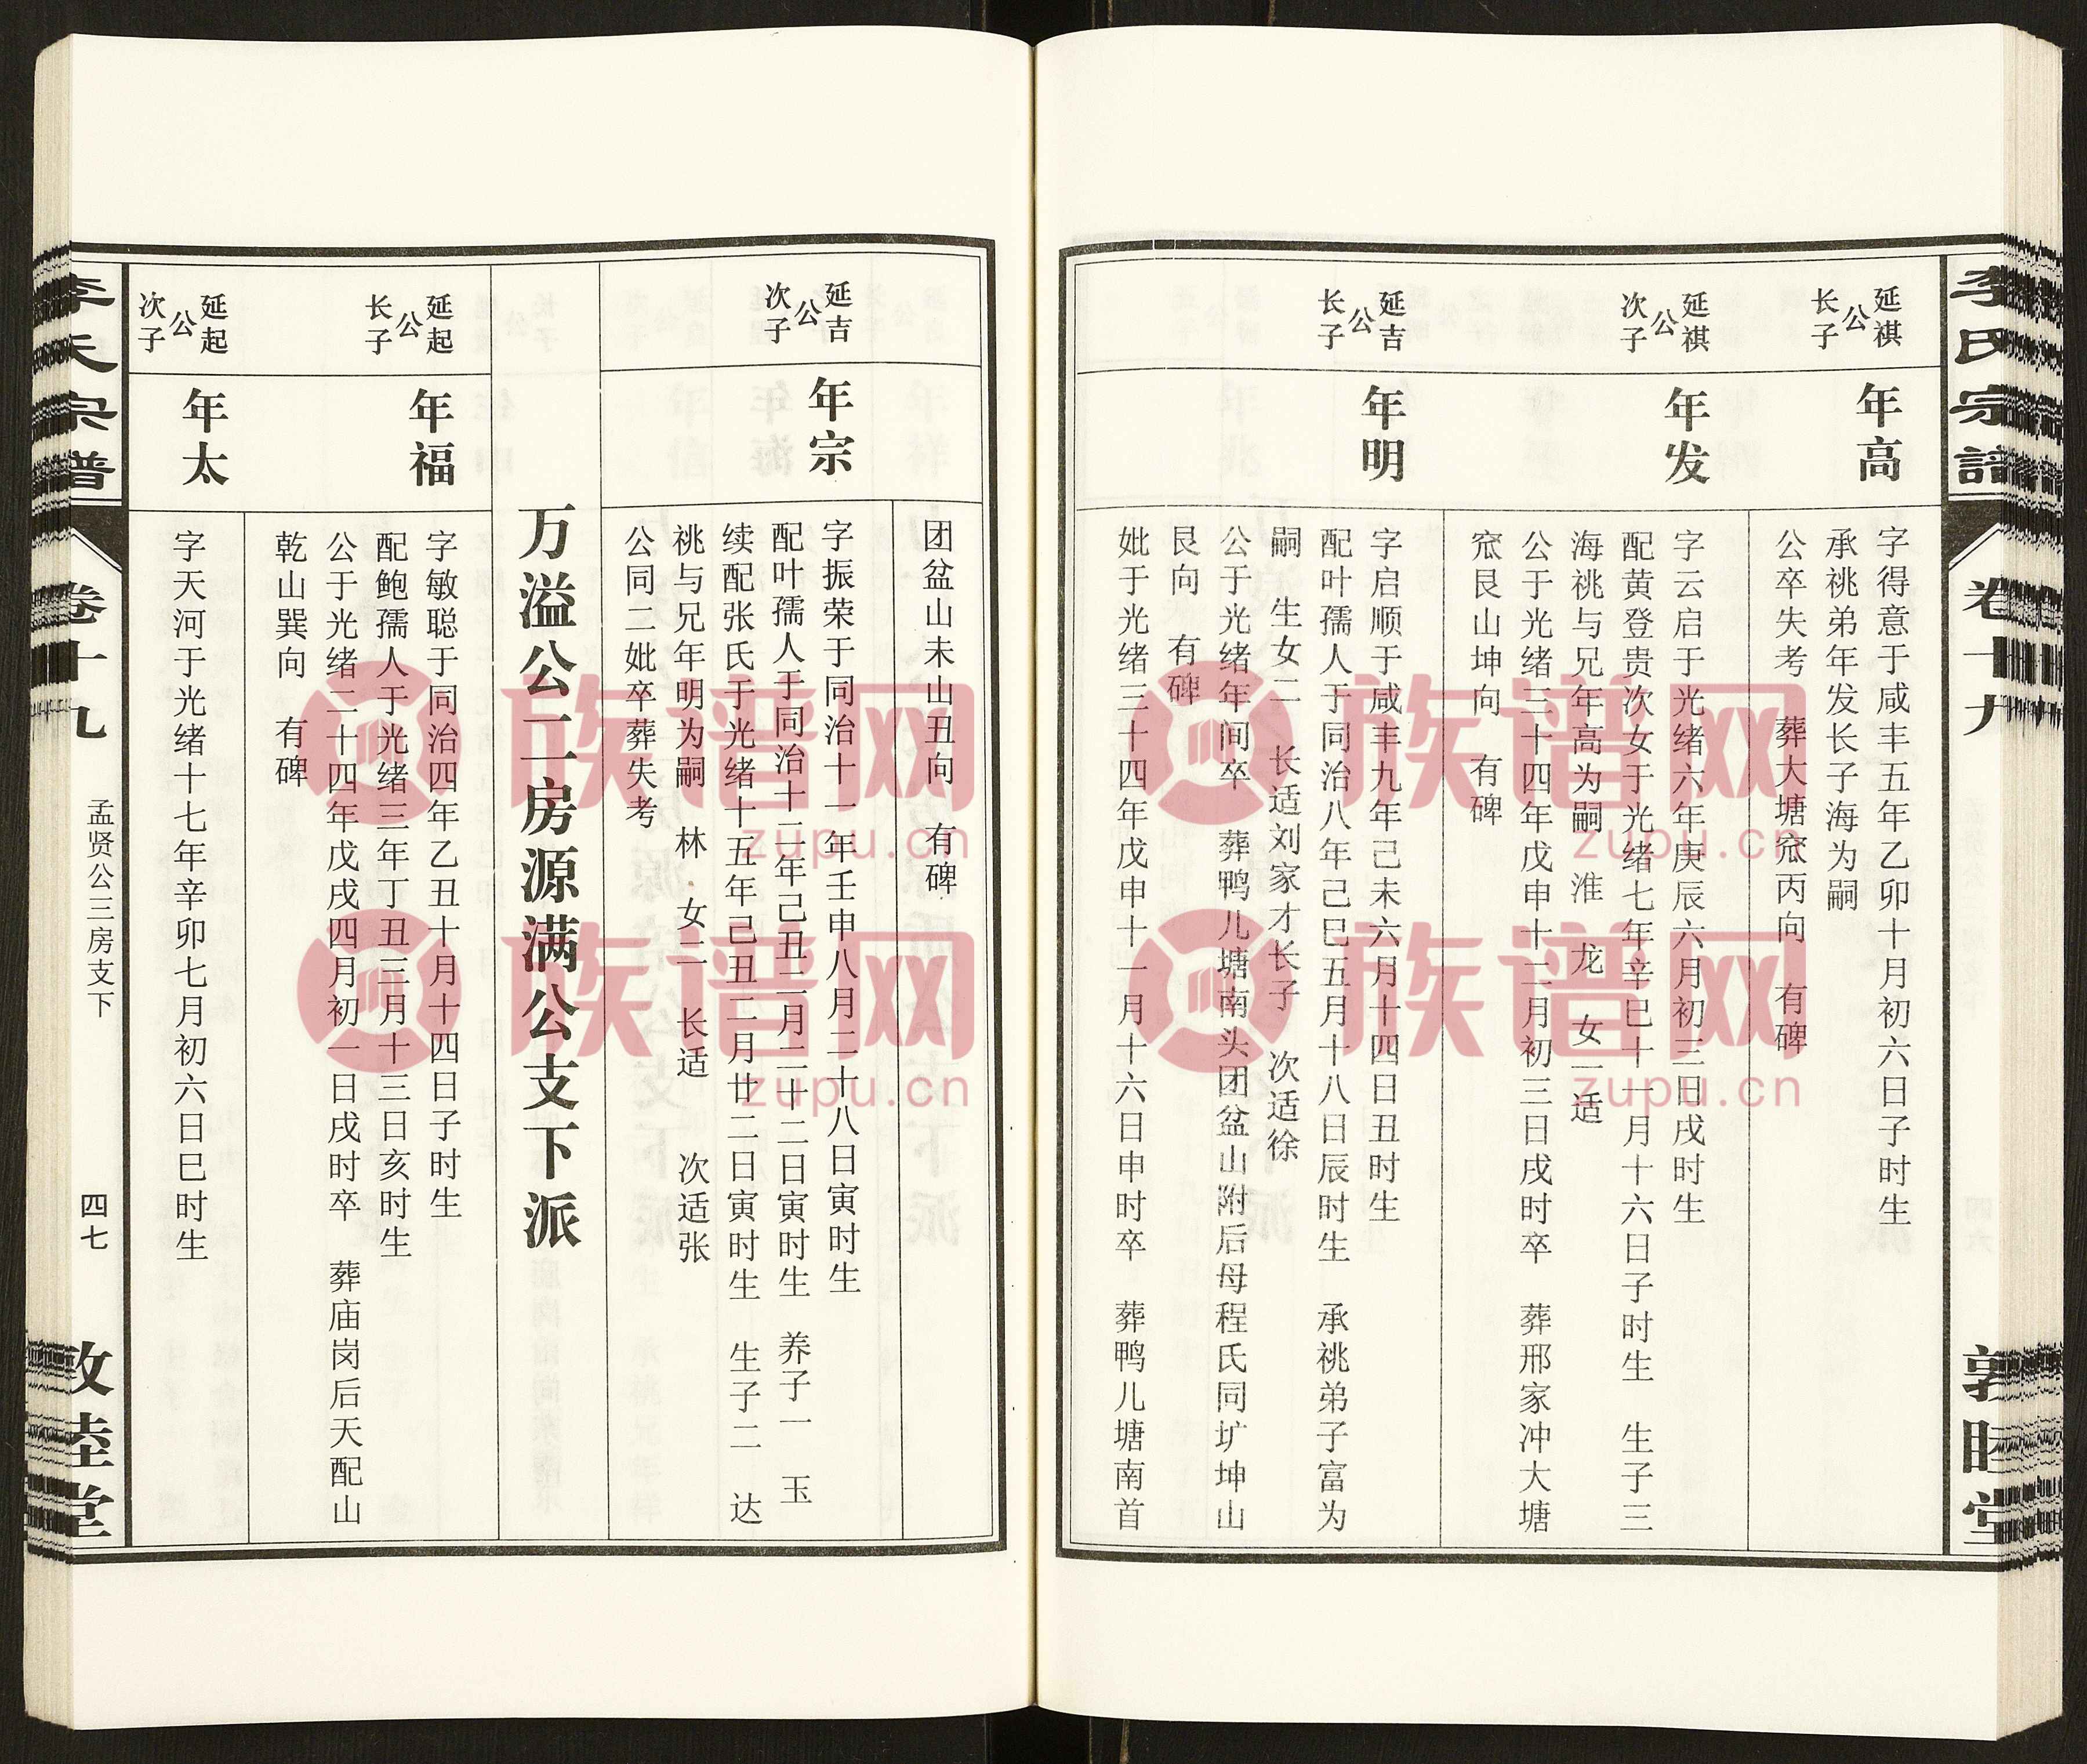 李氏宗谱
卷十九
敦睦堂
延祺公长子
年高
字得意于咸丰五年乙卯十月初六日子时生
承祧弟年发长子海为嗣
公卒失考 葬大塘窊丙向 有碑
延祺公次子
年发
字云启于光绪六年庚辰六月初三日戌时生
配黄登贵次女于光绪七年辛巳十一月十六日子时生 生子三
海祧与兄年高为嗣 淮 龙 女一适
公于光绪三十四年戊申十二月初三日戌时卒 葬邢家冲大塘
窊艮山坤向 有碑
延吉公长子
年明
字启顺于咸丰九年己未六月十四日丑时生
配叶孺人于同治八年己巳五月十八日辰时生 承祧弟子富为
嗣 生女二 长适刘家才长子 次适徐
公于光绪年间卒 葬鸭儿塘南头团盆山附后母程氏同圹坤山
艮向 有碑
妣于光绪三十四年戊申十一月十六日申时卒 葬鸭儿塘南首
团盆山未山丑向 有碑
延吉公次子
年宗
字振荣于同治十一年壬申八月二十八日寅时生
配叶孺人于同治十二年己丑二月二十二日寅时生 养子一 玉
续配张氏于光绪十五年己丑二月廿二日寅时生 生子二 达
祧与兄年明为嗣 林 女二 长适 次适张
公同二妣卒葬失考
万溢公二房源满公支下派
延起公长子
年福
字敏聪于同治四年乙丑十月十四日子时生
配鲍孺人于光绪三年丁丑三月十三日亥时生
公于光绪二十四年戊戌四月初一日戌时卒 葬庙岗后天配山
乾山巽向 有碑
延起公次子
年太
字天河于光绪十七年辛卯七月初六日巳时生
李氏宗谱
卷十九
孟贤公三房支下
四七
敦睦堂
族谱网
zupu.cn
族谱网
zupu.cn
族谱网
zupu.cn
族谱网
zupu.cn